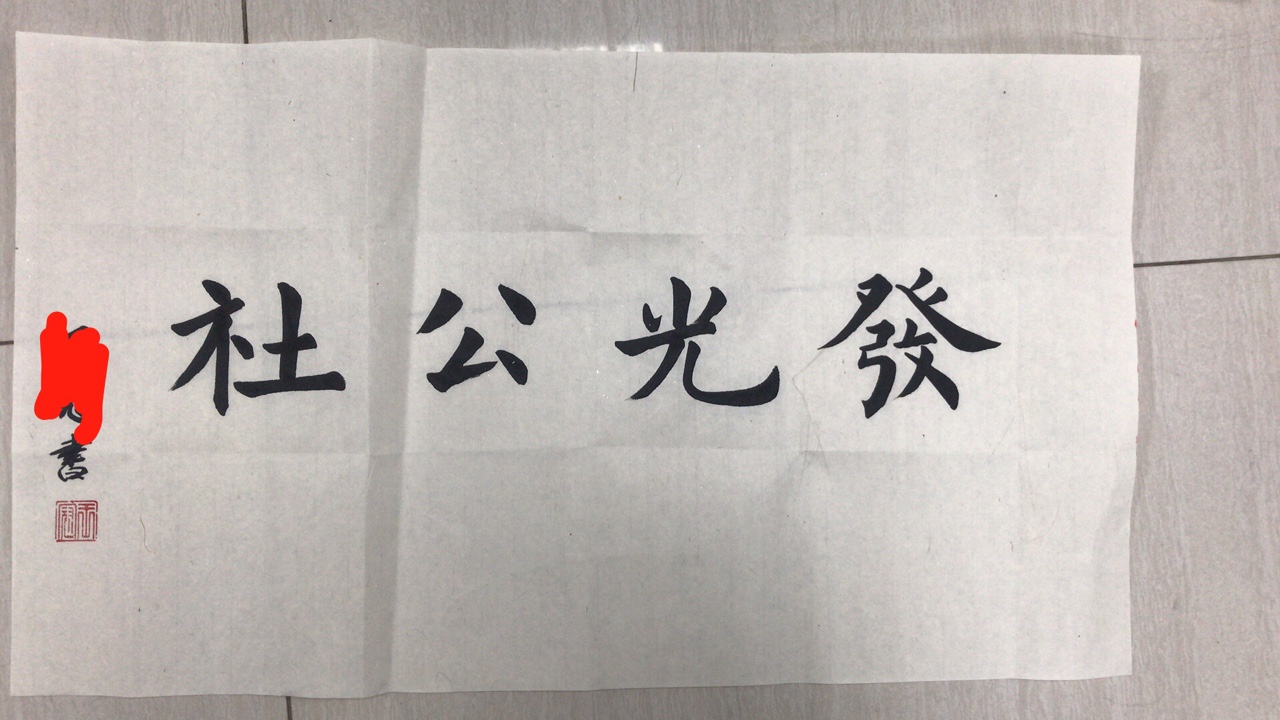 發光公社
書